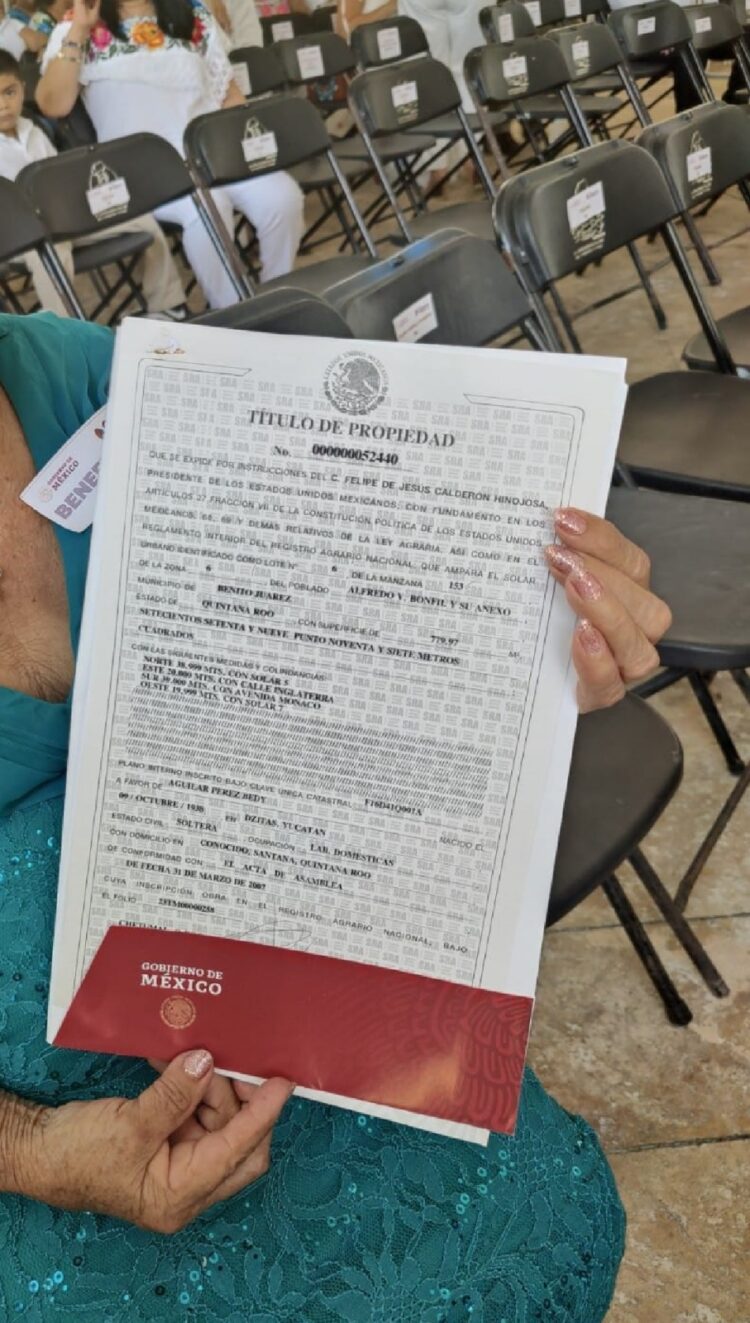 GOBIERNO DE
MÉXICO
BENEF
ESTADOS UNIDOS MEXICANOS
TÍTULO DE PROPIEDAD
No. 000000052440
QUE SE EXPIDE POR INSTRUCCIONES DEL C. FELIPE DE JESUS CALDERON HINOJOSA,
PRESIDENTE DE LOS ESTADOS UNIDOS MEXICANOS, CON FUNDAMENTO EN LOS
ARTICULOS 27 FRACCION VII DE LA CONSTITUCION POLITICA DE LOS ESTADOS UNIDOS
MEXICANOS, 68, 69 Y DEMAS RELATIVOS DE LA LEY AGRARIA, ASI COMO EN EL
REGLAMENTO INTERIOR DEL REGISTRO AGRARIO NACIONAL, QUE AMPARA EL SOLAR
URBANO IDENTIFICADO COMO LOTE N° 6 , DE LA MANZANA 153
DE LA ZONA 6 , DEL POBLADO ALFREDO V. BONFIL Y SU ANEXO
MUNICIPIO DE BENITO JUAREZ
ESTADO DE QUINTANA ROO , CON SUPERFICIE DE 779.97 M²,
SETECIENTOS SETENTA Y NUEVE PUNTO NOVENTA Y SIETE METROS
CUADRADOS
CON LAS SIGUIENTES MEDIDAS Y COLINDANCIAS:
NORTE 38.999 MTS. CON SOLAR 5
ESTE 20.000 MTS. CON CALLE INGLATERRA
SUR 39.000 MTS. CON AVENIDA MONACO
OESTE 19.999 MTS. CON SOLAR 7
PLANO INTERNO INSCRITO BAJO CLAVE UNICA CATASTRAL F16D41Q001A
A FAVOR DE AGUILAR PEREZ HEDY , NACIDO EL
09 / OCTUBRE / 1930 EN DZITAS, YUCATAN
ESTADO CIVIL SOLTERA , OCUPACION LAB. DOMESTICAS
CON DOMICILIO EN CONOCIDO, SANTANA, QUINTANA ROO
DE CONFORMIDAD CON EL ACTA DE ASAMBLEA
DE FECHA 31 DE MARZO DE 2007
CUYA INSCRIPCION OBRA EN EL REGISTRO AGRARIO NACIONAL, BAJO
EL FOLIO 23TM00000258
CHETUMAL
GOBIERNO DE
MÉXICO